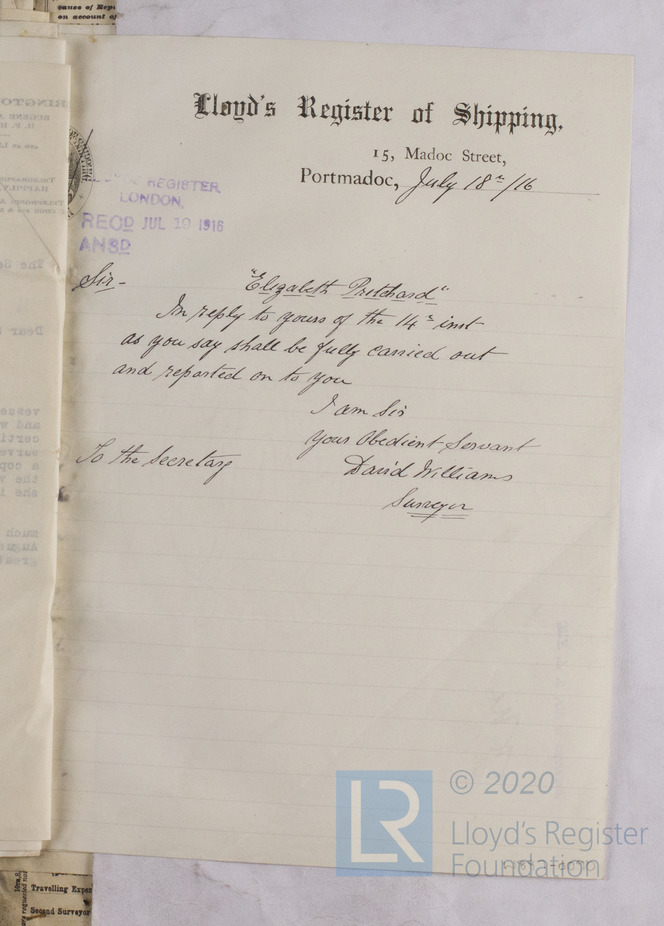 cause of Rep
on account of
Lloyd's Register of Shipping.
15, Madoc Street,
Portmadoc, July 18th/16
REGISTER,
LONDON,
RECD JUL 19 1916
ANSD
Sir - "Elizabeth Pritchard"
In reply to yours of the 14th inst
as you say shall be fully carried out
and reported on to you
I am Sir
Your Obedient Servant
To the Secretary David Williams
Surveyor
© 2020
LR Lloyd's Register
Foundation
Travelling Expen
Second Surveyor